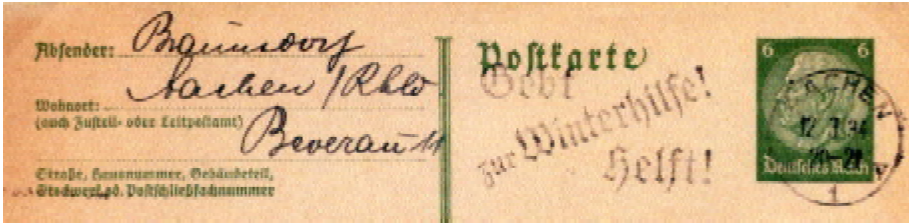 Absender: Braunsdorf
Aachen / Rhld
Wohnort:
(auch Zustell- oder Leitpostamt)
Beverau 11
Straße, Hausnummer, Gebäudeteil,
Stockwerk od. Postschließfachnummer
Postkarte
Gebt
zur Winterhilfe!
Helft!
6 6
Deutsches Reich
AACHEN
1